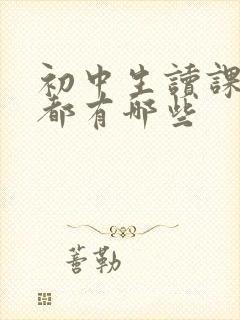 初中生讀課
都有哪些
蓍勒